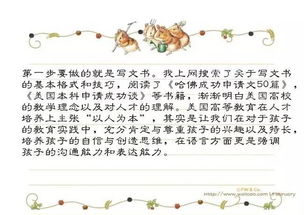 第一步要做的就是写文书。我上网搜索了关于写文书
的基本格式和技巧，阅读了《哈佛成功申请文50篇》
，《美国本科申请成功谈》等书籍，渐渐明白美国高校
的教学理念以及对人才的理解。美国高等教育在人才
培养上主张“以人为本”，其实是让我们在对于孩子
的教育实践中，充分肯定与尊重孩子的兴趣以及特长，
培养孩子的自信与创造思维，在语言方面更是强调
孩子的沟通能力和表达能力。